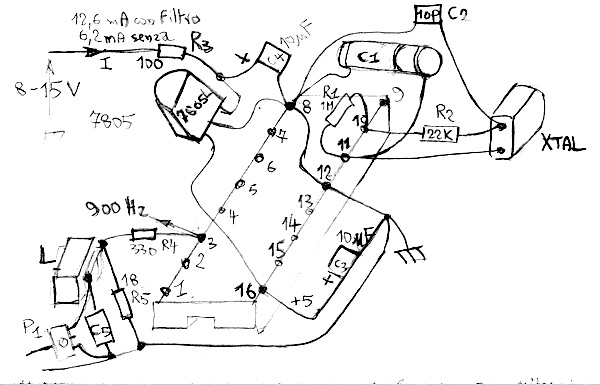 12,6 mA con Filtro
6,2 mA senza
I
100
R3
+
C4
10µF
10p
C2
C1
8-15V
7805
7805L
8
R1
1M
9
10
11
R2
22K
XTAL
7
6
5
4
12
13
14
15
16
900 Hz
330
R4
3
2
1
L
18
R5
P1
C5
+5
10µF
C3
+